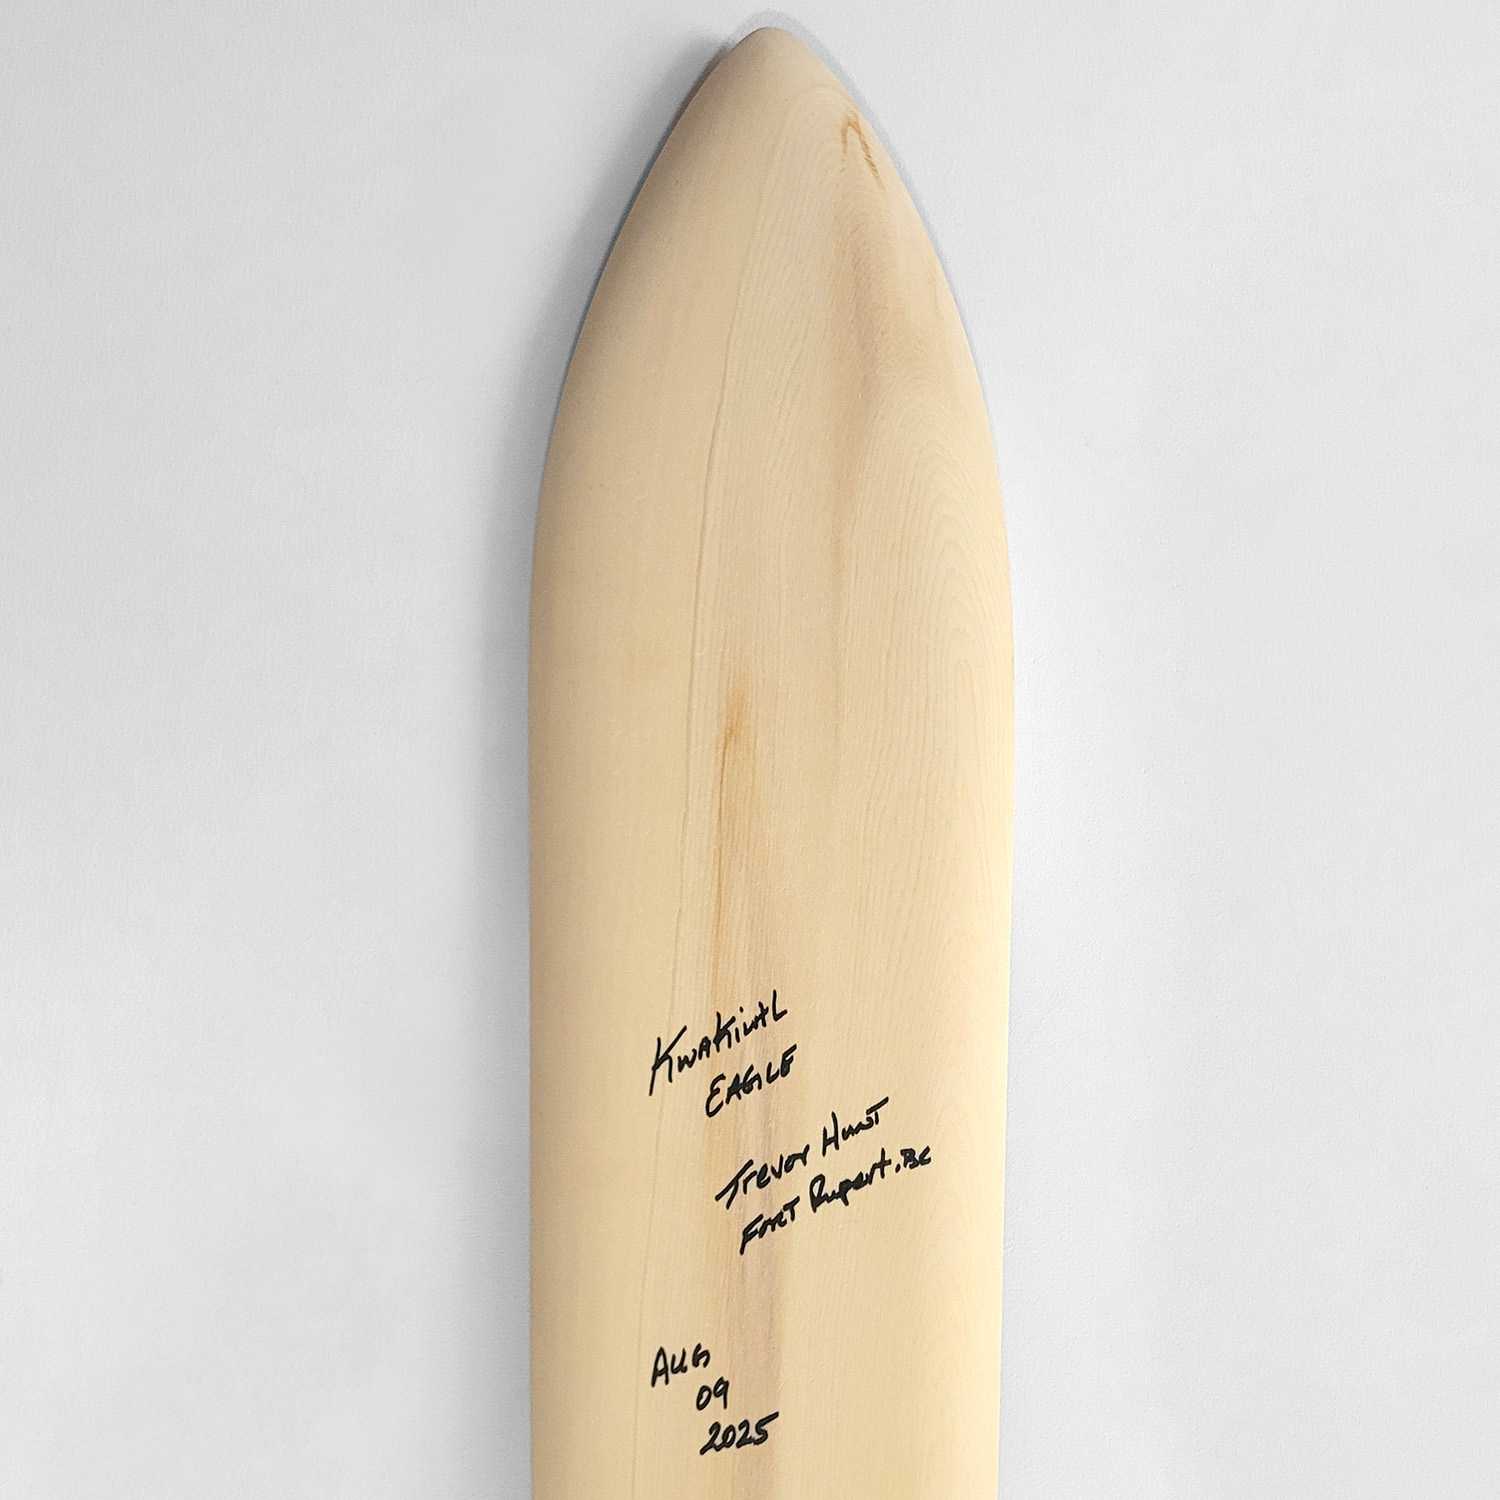 KwaKiutL
EAGLE
Trevor Hunt
Fort Rupert, BC
AUG
09
2025